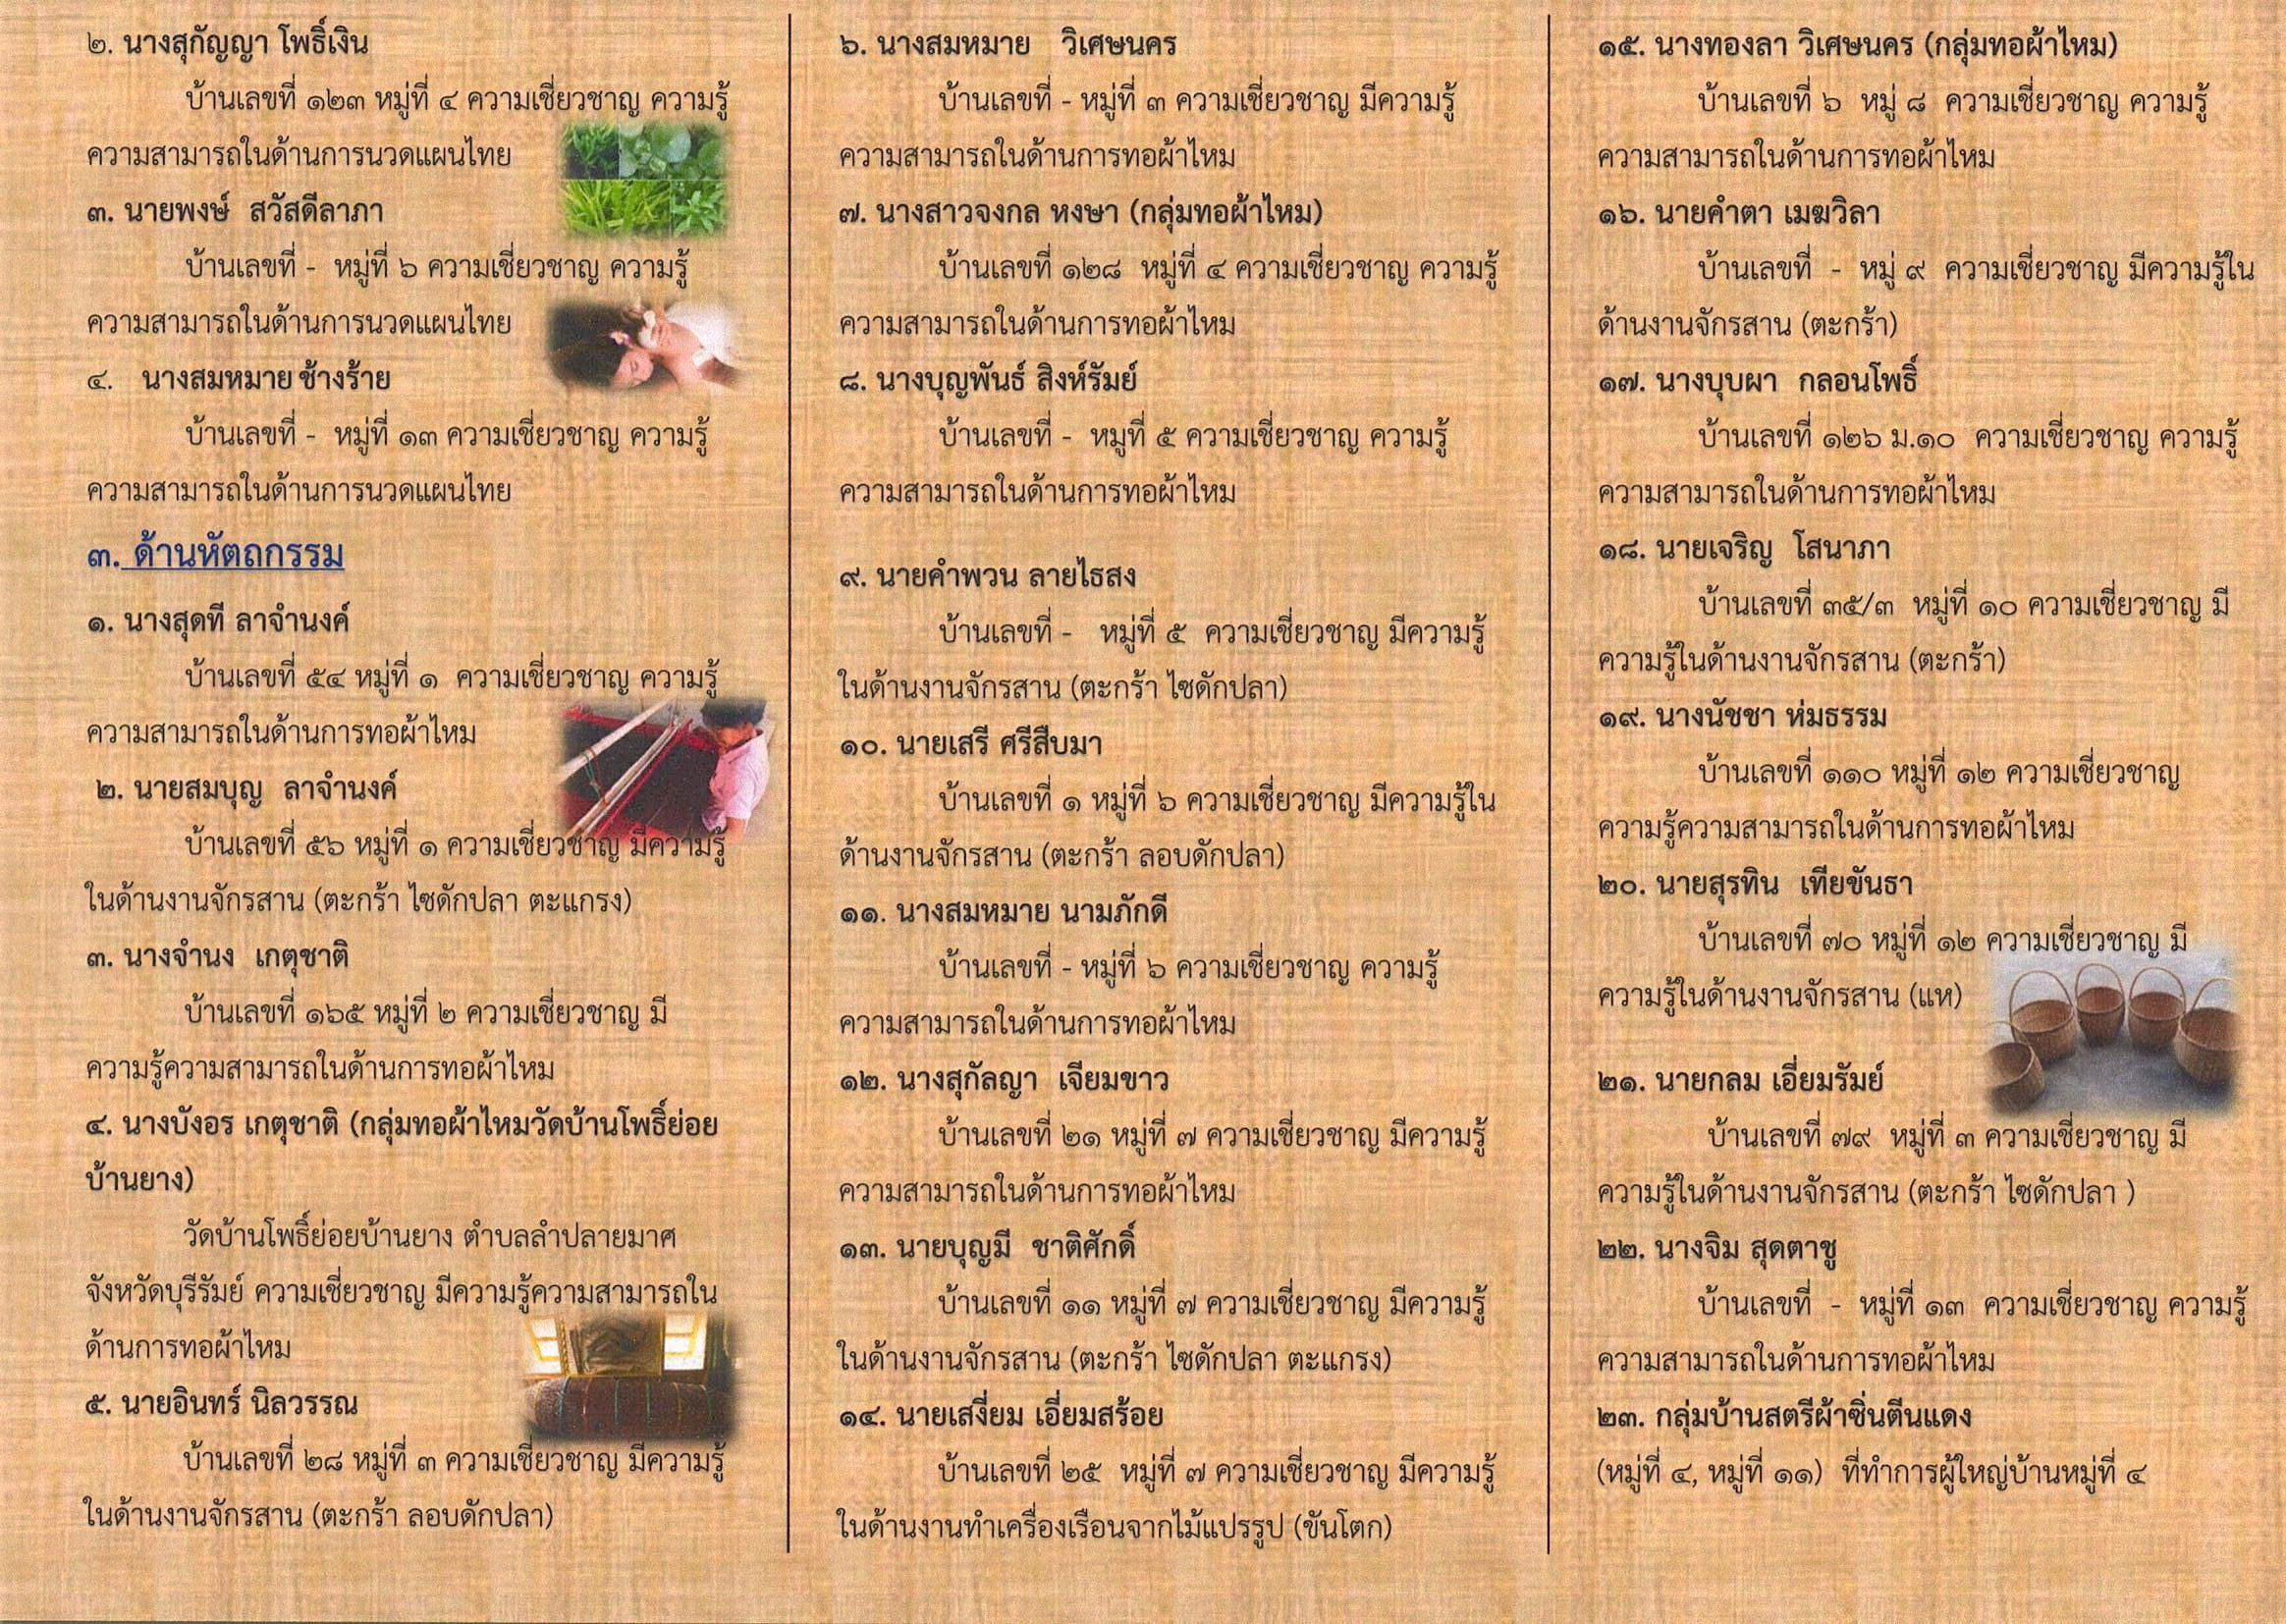 ๒. นางสุกัญญา โพธิ์เงิน
บ้านเลขที่ ๑๒๓ หมู่ที่ ๔ ความเชี่ยวชาญ ความรู้
ความสามารถในด้านการนวดแผนไทย
๓. นายพงษ์ สวัสดีลาภา
บ้านเลขที่ - หมู่ที่ ๖ ความเชี่ยวชาญ ความรู้
ความสามารถในด้านการนวดแผนไทย
๔. นางสมหมาย ช้างร้าย
บ้านเลขที่ - หมู่ที่ ๑๓ ความเชี่ยวชาญ ความรู้
ความสามารถในด้านการนวดแผนไทย
๓. ด้านหัตถกรรม
๑. นางสุดที ลาจำนงค์
บ้านเลขที่ ๕๔ หมู่ที่ ๑ ความเชี่ยวชาญ ความรู้
ความสามารถในด้านการทอผ้าไหม
๒. นายสมบุญ ลาจำนงค์
บ้านเลขที่ ๕๖ หมู่ที่ ๑ ความเชี่ยวชาญ มีความรู้
ในด้านงานจักรสาน (ตะกร้า ไซดักปลา ตะแกรง)
๓. นางจำนง เกตุชาติ
บ้านเลขที่ ๑๖๕ หมู่ที่ ๒ ความเชี่ยวชาญ มี
ความรู้ความสามารถในด้านการทอผ้าไหม
๔. นางบังอร เกตุชาติ (กลุ่มทอผ้าไหมวัดบ้านโพธิ์ย่อย
บ้านยาง)
วัดบ้านโพธิ์ย่อยบ้านยาง ตำบลลำปลายมาศ
จังหวัดบุรีรัมย์ ความเชี่ยวชาญ มีความรู้ความสามารถใน
ด้านการทอผ้าไหม
๕. นายอินทร์ นิลวรรณ
บ้านเลขที่ ๒๘ หมู่ที่ ๓ ความเชี่ยวชาญ มีความรู้
ในด้านงานจักรสาน (ตะกร้า ลอบดักปลา)
๖. นางสมหมาย วิเศษนคร
บ้านเลขที่ - หมู่ที่ ๓ ความเชี่ยวชาญ มีความรู้
ความสามารถในด้านการทอผ้าไหม
๗. นางสาวจงกล หงษา (กลุ่มทอผ้าไหม)
บ้านเลขที่ ๑๒๘ หมู่ที่ ๔ ความเชี่ยวชาญ ความรู้
ความสามารถในด้านการทอผ้าไหม
๘. นางบุญพันธ์ สิงห์รัมย์
บ้านเลขที่ - หมุที่ ๕ ความเชี่ยวชาญ ความรู้
ความสามารถในด้านการทอผ้าไหม
๙. นายคำพวน ลายไธสง
บ้านเลขที่ - หมู่ที่ ๕ ความเชี่ยวชาญ มีความรู้
ในด้านงานจักรสาน (ตะกร้า ไซดักปลา)
๑๐. นายเสรี ศรีสืบมา
บ้านเลขที่ ๑ หมู่ที่ ๖ ความเชี่ยวชาญ มีความรู้ใน
ด้านงานจักรสาน (ตะกร้า ลอบดักปลา)
๑๑. นางสมหมาย นามภักดี
บ้านเลขที่ - หมู่ที่ ๖ ความเชี่ยวชาญ ความรู้
ความสามารถในด้านการทอผ้าไหม
๑๒. นางสุกัลญา เจียมขาว
บ้านเลขที่ ๒๑ หมู่ที่ ๗ ความเชี่ยวชาญ มีความรู้
ความสามารถในด้านการทอผ้าไหม
๑๓. นายบุญมี ชาติศักดิ์
บ้านเลขที่ ๑๑ หมู่ที่ ๗ ความเชี่ยวชาญ มีความรู้
ในด้านงานจักรสาน (ตะกร้า ไซดักปลา ตะแกรง)
๑๔. นายเสงี่ยม เอี่ยมสร้อย
บ้านเลขที่ ๒๕ หมู่ที่ ๗ ความเชี่ยวชาญ มีความรู้
ในด้านงานทำเครื่องเรือนจากไม้แปรรูป (ขันโตก)
๑๕. นางทองลา วิเศษนคร (กลุ่มทอผ้าไหม)
บ้านเลขที่ ๖ หมู่ ๘ ความเชี่ยวชาญ ความรู้
ความสามารถในด้านการทอผ้าไหม
๑๖. นายคำตา เมฆวิลา
บ้านเลขที่ - หมู่ ๙ ความเชี่ยวชาญ มีความรู้ใน
ด้านงานจักรสาน (ตะกร้า)
๑๗. นางบุบผา กลอนโพธิ์
บ้านเลขที่ ๑๒๖ ม.๑๐ ความเชี่ยวชาญ ความรู้
ความสามารถในด้านการทอผ้าไหม
๑๘. นายเจริญ โสนาภา
บ้านเลขที่ ๓๕/๓ หมู่ที่ ๑๐ ความเชี่ยวชาญ มี
ความรู้ในด้านงานจักรสาน (ตะกร้า)
๑๙. นางนัชชา ห่มธรรม
บ้านเลขที่ ๑๑๐ หมู่ที่ ๑๒ ความเชี่ยวชาญ
ความรู้ความสามารถในด้านการทอผ้าไหม
๒๐. นายสุรทิน เทียขันธา
บ้านเลขที่ ๗๐ หมู่ที่ ๑๒ ความเชี่ยวชาญ มี
ความรู้ในด้านงานจักรสาน (แห)
๒๑. นายกลม เอี่ยมรัมย์
บ้านเลขที่ ๗๙ หมู่ที่ ๓ ความเชี่ยวชาญ มี
ความรู้ในด้านงานจักรสาน (ตะกร้า ไซดักปลา )
๒๒. นางจิม สุดตาชู
บ้านเลขที่ - หมู่ที่ ๑๓ ความเชี่ยวชาญ ความรู้
ความสามารถในด้านการทอผ้าไหม
๒๓. กลุ่มบ้านสตรีผ้าซิ่นตีนแดง
(หมู่ที่ ๔, หมู่ที่ ๑๑) ที่ทำการผู้ใหญ่บ้านหมู่ที่ ๔